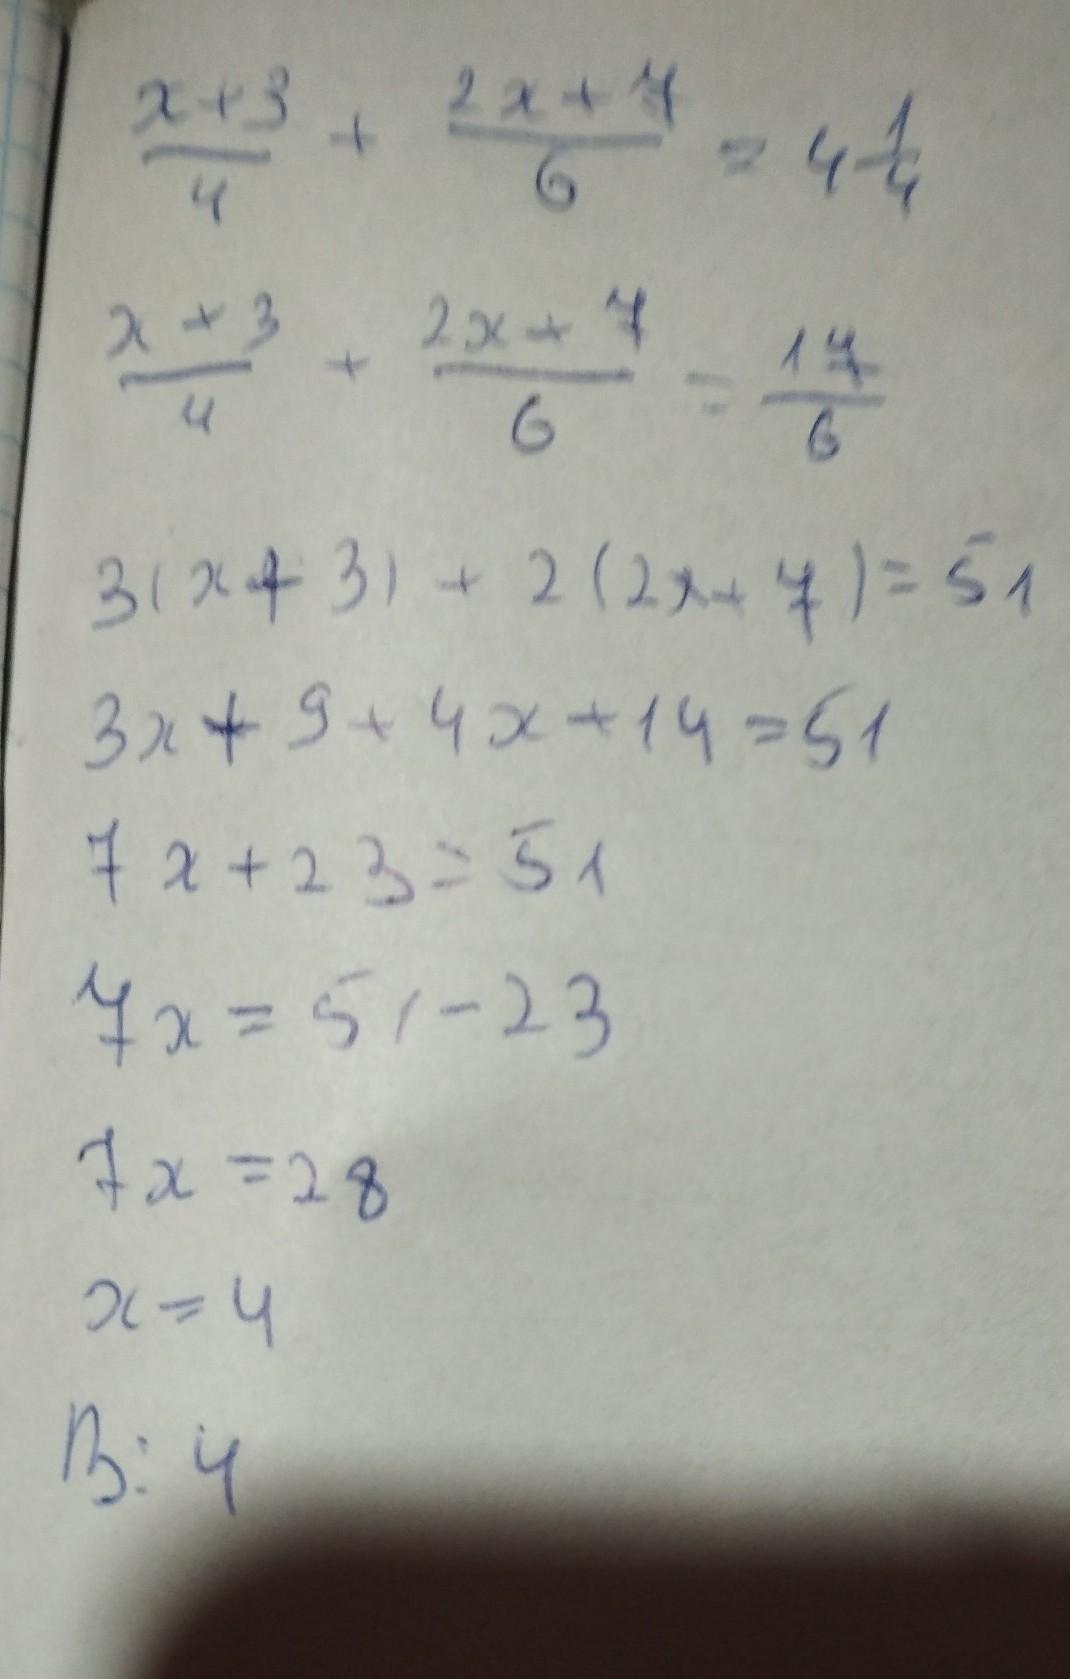 (x+3)/4 + (2x+7)/6 = 4 1/4
(x+3)/4 + (2x+7)/6 = 17/6
3(x+3) + 2(2x+7)=51
3x+9+4x+14=51
7x+23=51
7x=51-23
7x=28
x=4
В: 4